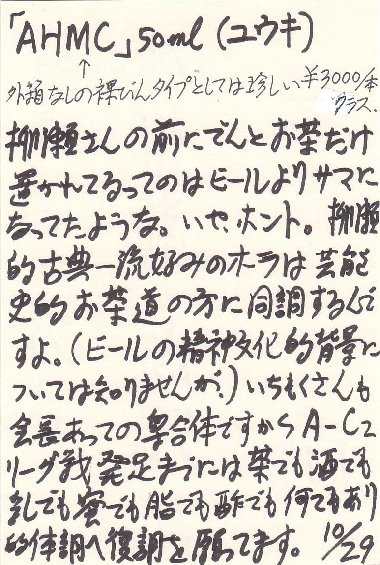 「AHMC」50ml(ユウキ)
↑
外箱なしの裸びんタイプとしては珍しい¥3000/本
クラス.
柳瀬さんの前にでんとお茶だけ
置かれてるってのはビールよりサマに
なってたような。いや、ホント。柳瀬
的古典一流好みのホラは芸能
史的お茶道の方に同調するんで
すよ。(ビールの精神文化的背景に
ついては知りませんが。)いちもくさんも
会長あっての集合体ですからA-C2
リーグ戦発足までには茶でも酒でも
乳でも蜜でも脂でも酢でも何でもあり
的体調へ復調を願ってます。10/29